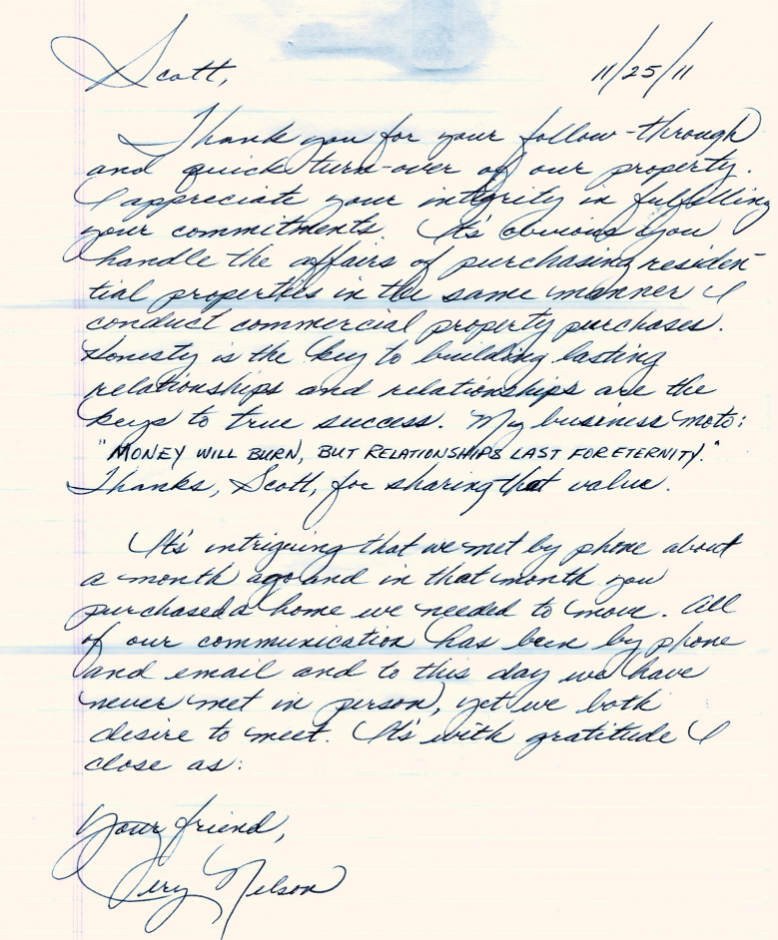 Scott, 11/25/11
Thank you for your follow-through
and quick turn-over of our property.
I appreciate your integrity in fulfilling
your commitments. It's obvious you
handle the affairs of purchasing residen-
tial properties in the same manner I
conduct commercial property purchases.
Honesty is the key to building lasting
relationships and relationships are the
keys to true success. My business moto:
"MONEY WILL BURN, BUT RELATIONSHIPS LAST FOR ETERNITY."
Thanks, Scott, for sharing that value.
It's intriguing that we met by phone about
a month ago and in that month you
purchased a home we needed to move. All
of our communication has been by phone
and email and to this day we have
never met in person, yet we both
desire to meet. It's with gratitude I
close as:
Your friend,
Nelson